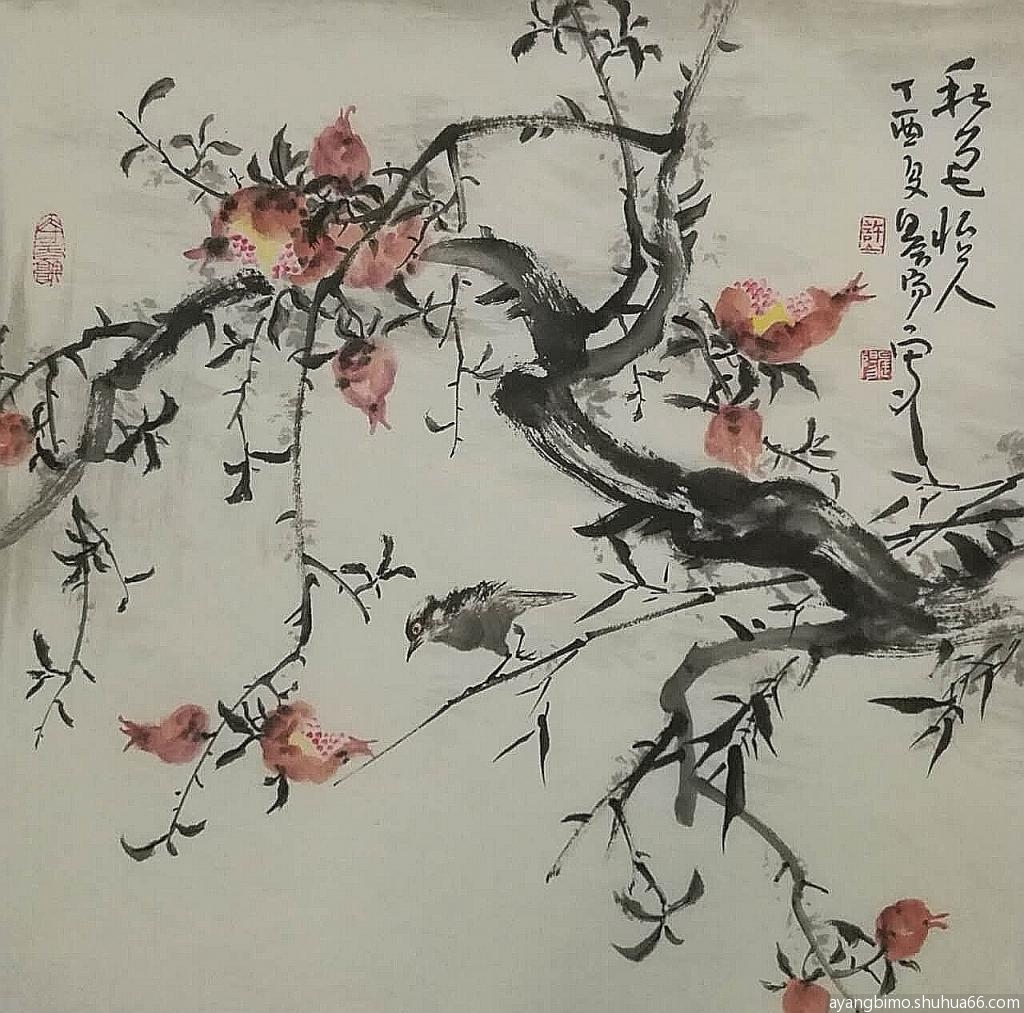 秋色怡人
丁酉夏阳写
許
ayangbimo.shuhua66.com